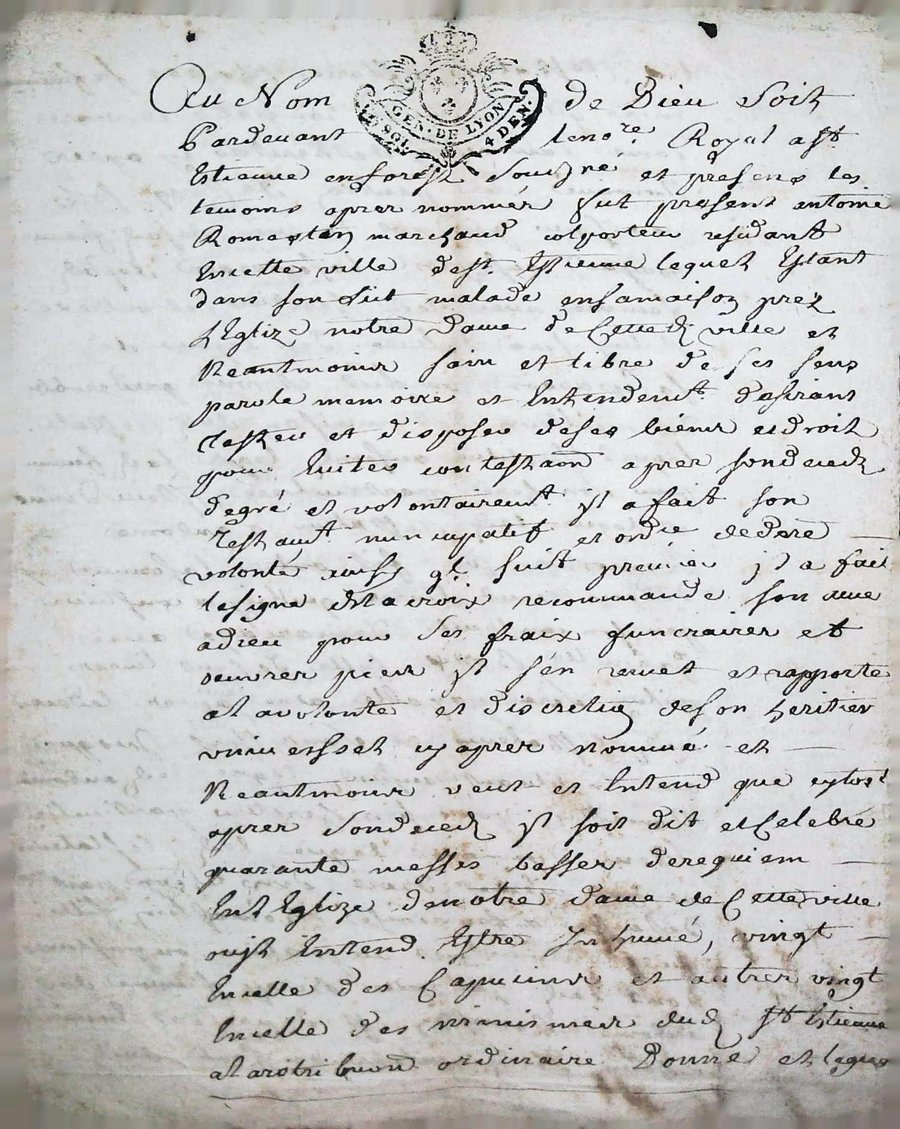 Au Nom de Dieu soit
GEN. DE LYON
4 DEN.
Pardevant le no.re Royal a st.
Estienne en forest soubsigné et presens les
temoins apres nommés fut present antoine
Romestan marchand colporteur residant
En cette ville de st. Estienne lequel Estant
dans son lit malade en sa maison prez
L'Eglize notre dame de Cetted. ville et
Neantmoins sain et libre de ses sens
parole memoire et Entendem.t desirant
Tester et disposer de ses biens et droits
pour Eviter contestaon apres son deced
de gré et volontairem.t jl a fait son
Testam.t nuncupatif et ord.re de dere
volonté ainsy q.l suit premier jl a fait
le signe de la croix recommande son ame
a dieu pour ses fraix funeraires et
oeuvres pies jl s'en remet et rapporte
a la volonte et discretion de son heritier
universsel cy apres nommé et
Neantmoins veut et Entend que
apres son deced jl soit dit et Celebré
quarante messes basses de requiem
En L'Eglize de notre dame de Cette ville
ou jl Entend Estre Inhumé, vingt
En celle des Capucins et autres vingt
En celle des minimes dud. st Estienne
a la retribuon ordinaire Donne et legue